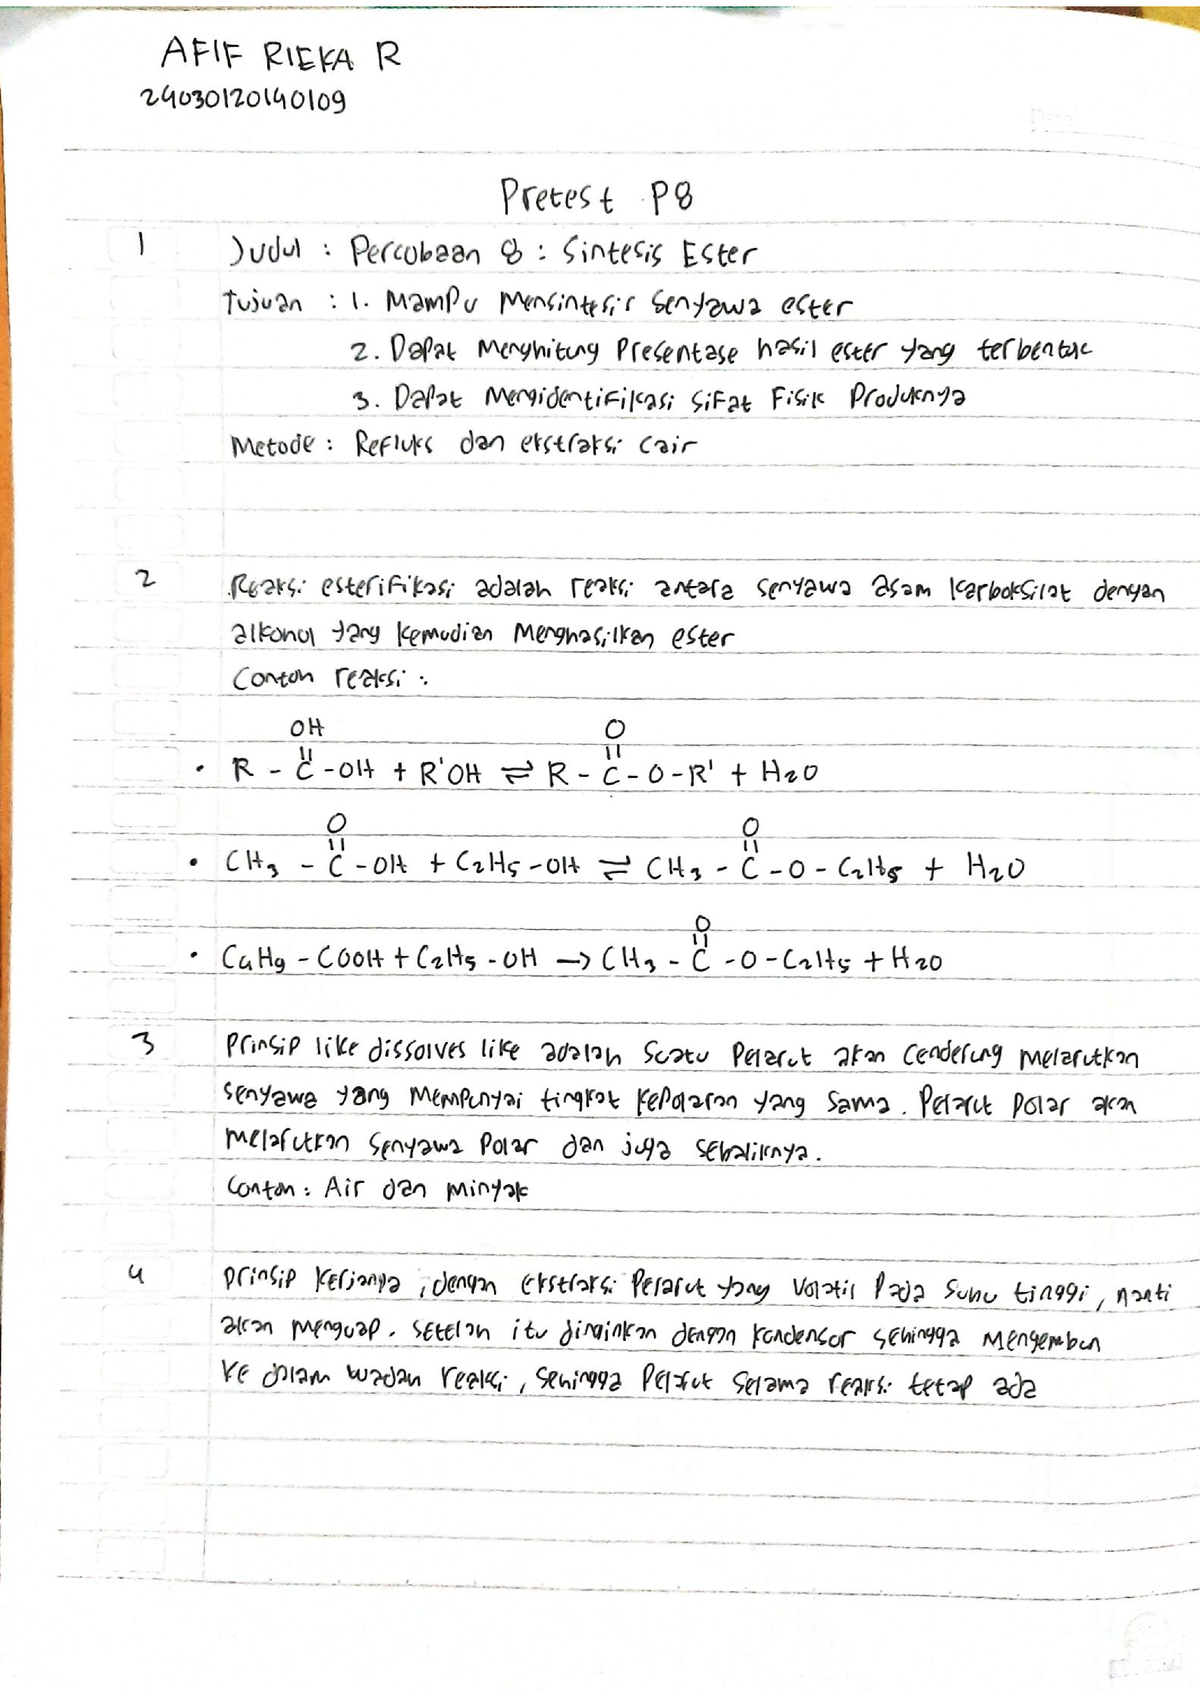 AFIF RIEKA R
24030120140109
Pretest P8
1 Judul : Percobaan 8 : Sintesis Ester
Tujuan : 1. Mampu Mensintesis Senyawa ester
2. Dapat Menghitung Presentase hasil ester yang terbentuk
3. Dapat Mengidentifikasi Sifat Fisik Produknya
Metode : Refluks dan ekstraksi Cair
2 Reaksi esterifikasi adalah reaksi antara senyawa asam karboksilat dengan
alkohol yang kemudian Menghasilkan ester
Contoh reaksi :
OH O
• R - C - OH + R'OH ⇌ R - C - O - R' + H2O
O O
• CH3 - C - OH + C2H5 - OH ⇌ CH3 - C - O - C2H5 + H2O
O
• C4H9 - COOH + C2H5 - OH → CH3 - C - O - C2H5 + H2O
3 Prinsip like dissolves like adalah Suatu Pelarut akan Cenderung melarutkan
senyawa yang Mempunyai tingkat kepolaran yang sama. Pelarut Polar akan
melarutkan senyawa Polar dan juga sebaliknya.
Contoh : Air dan minyak
4 Prinsip Kerjanya ; dengan Ekstraksi Pelarut yang Volatil Pada Suhu tinggi, nanti
akan menguap. Setelah itu dinginkan dengan kondensor sehingga mengembun
ke dalam wadah reaksi, sehingga Pelarut selama reaksi tetap ada